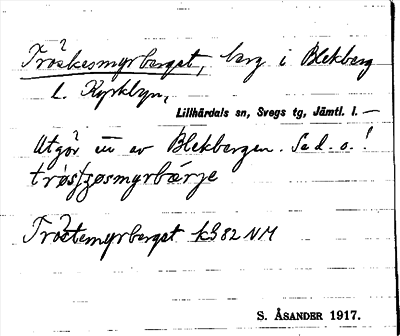 Tröskesmyrberget, berg i Blekberg
l. Kyrkbyn,
Lillhärdals sn, Svegs tg, Jämtl. l. —
Utgör en av Blekbergen. Sa d. o.!
Trostemyrberget kG82 NM
S. ÅSANDER 1917.